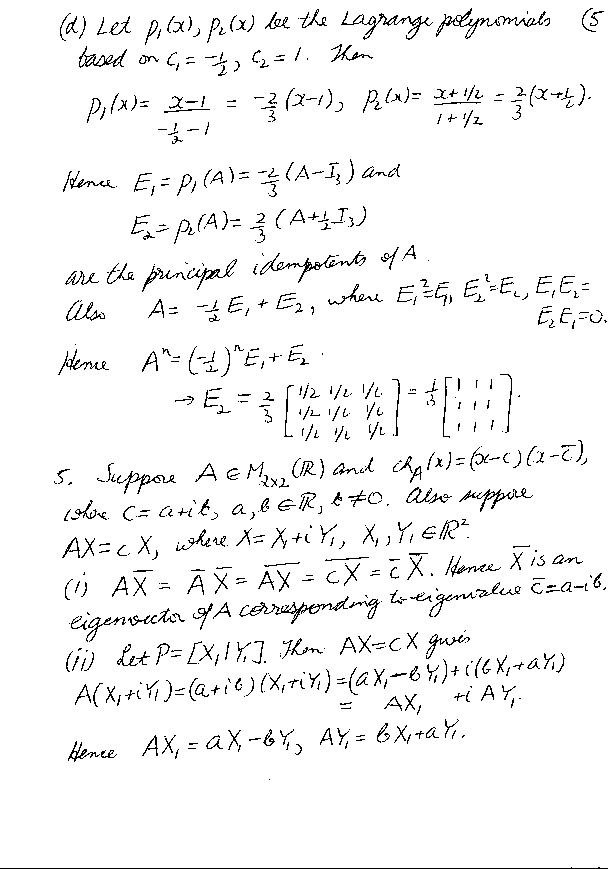 (d) Let p₁(x), p₂(x) be the Lagrange polynomials (5
based on c₁ = -1/2, c₂ = 1. Then
p₁(x) = (x-1)/(-1/2 - 1) = -2/3 (x-1), p₂(x) = (x+1/2)/(1+1/2) = 2/3 (x+1/2).
Hence E₁ = p₁(A) = -2/3 (A-I₃) and
E₂ = p₂(A) = 2/3 (A+1/2 I₃)
are the principal idempotents of A.
Also A = -1/2 E₁ + E₂, where E₁²=E₁, E₂²=E₂, E₁E₂=
E₂E₁=0.
Hence Aⁿ = (-1/2)ⁿE₁ + E₂.
→ E₂ = 2/3 [1/2 1/2 1/2; 1/2 1/2 1/2; 1/2 1/2 1/2] = 1/3 [1 1 1; 1 1 1; 1 1 1].
5. Suppose A ∈ M₂ₓ₂(ℝ) and ch_A(x) = (x-c)(x-c̅),
where c = a+ib, a, b ∈ ℝ, b ≠ 0. Also suppose
AX = cX, where X = X₁+iY₁, X₁, Y₁ ∈ ℝ².
(i) AX̅ = A̅ X̅ = A̅X̅ = c̅X̅ = c̅ X̅. Hence X̅ is an
eigenvector of A corresponding to eigenvalue c̅ = a-ib.
(ii) Let P = [X₁|Y₁]. Then AX = cX gives
A(X₁+iY₁) = (a+ib)(X₁+iY₁) = (aX₁-bY₁)+i(bX₁+aY₁)
= AX₁ +iAY₁.
Hence AX₁ = aX₁-bY₁, AY₁ = bX₁+aY₁.